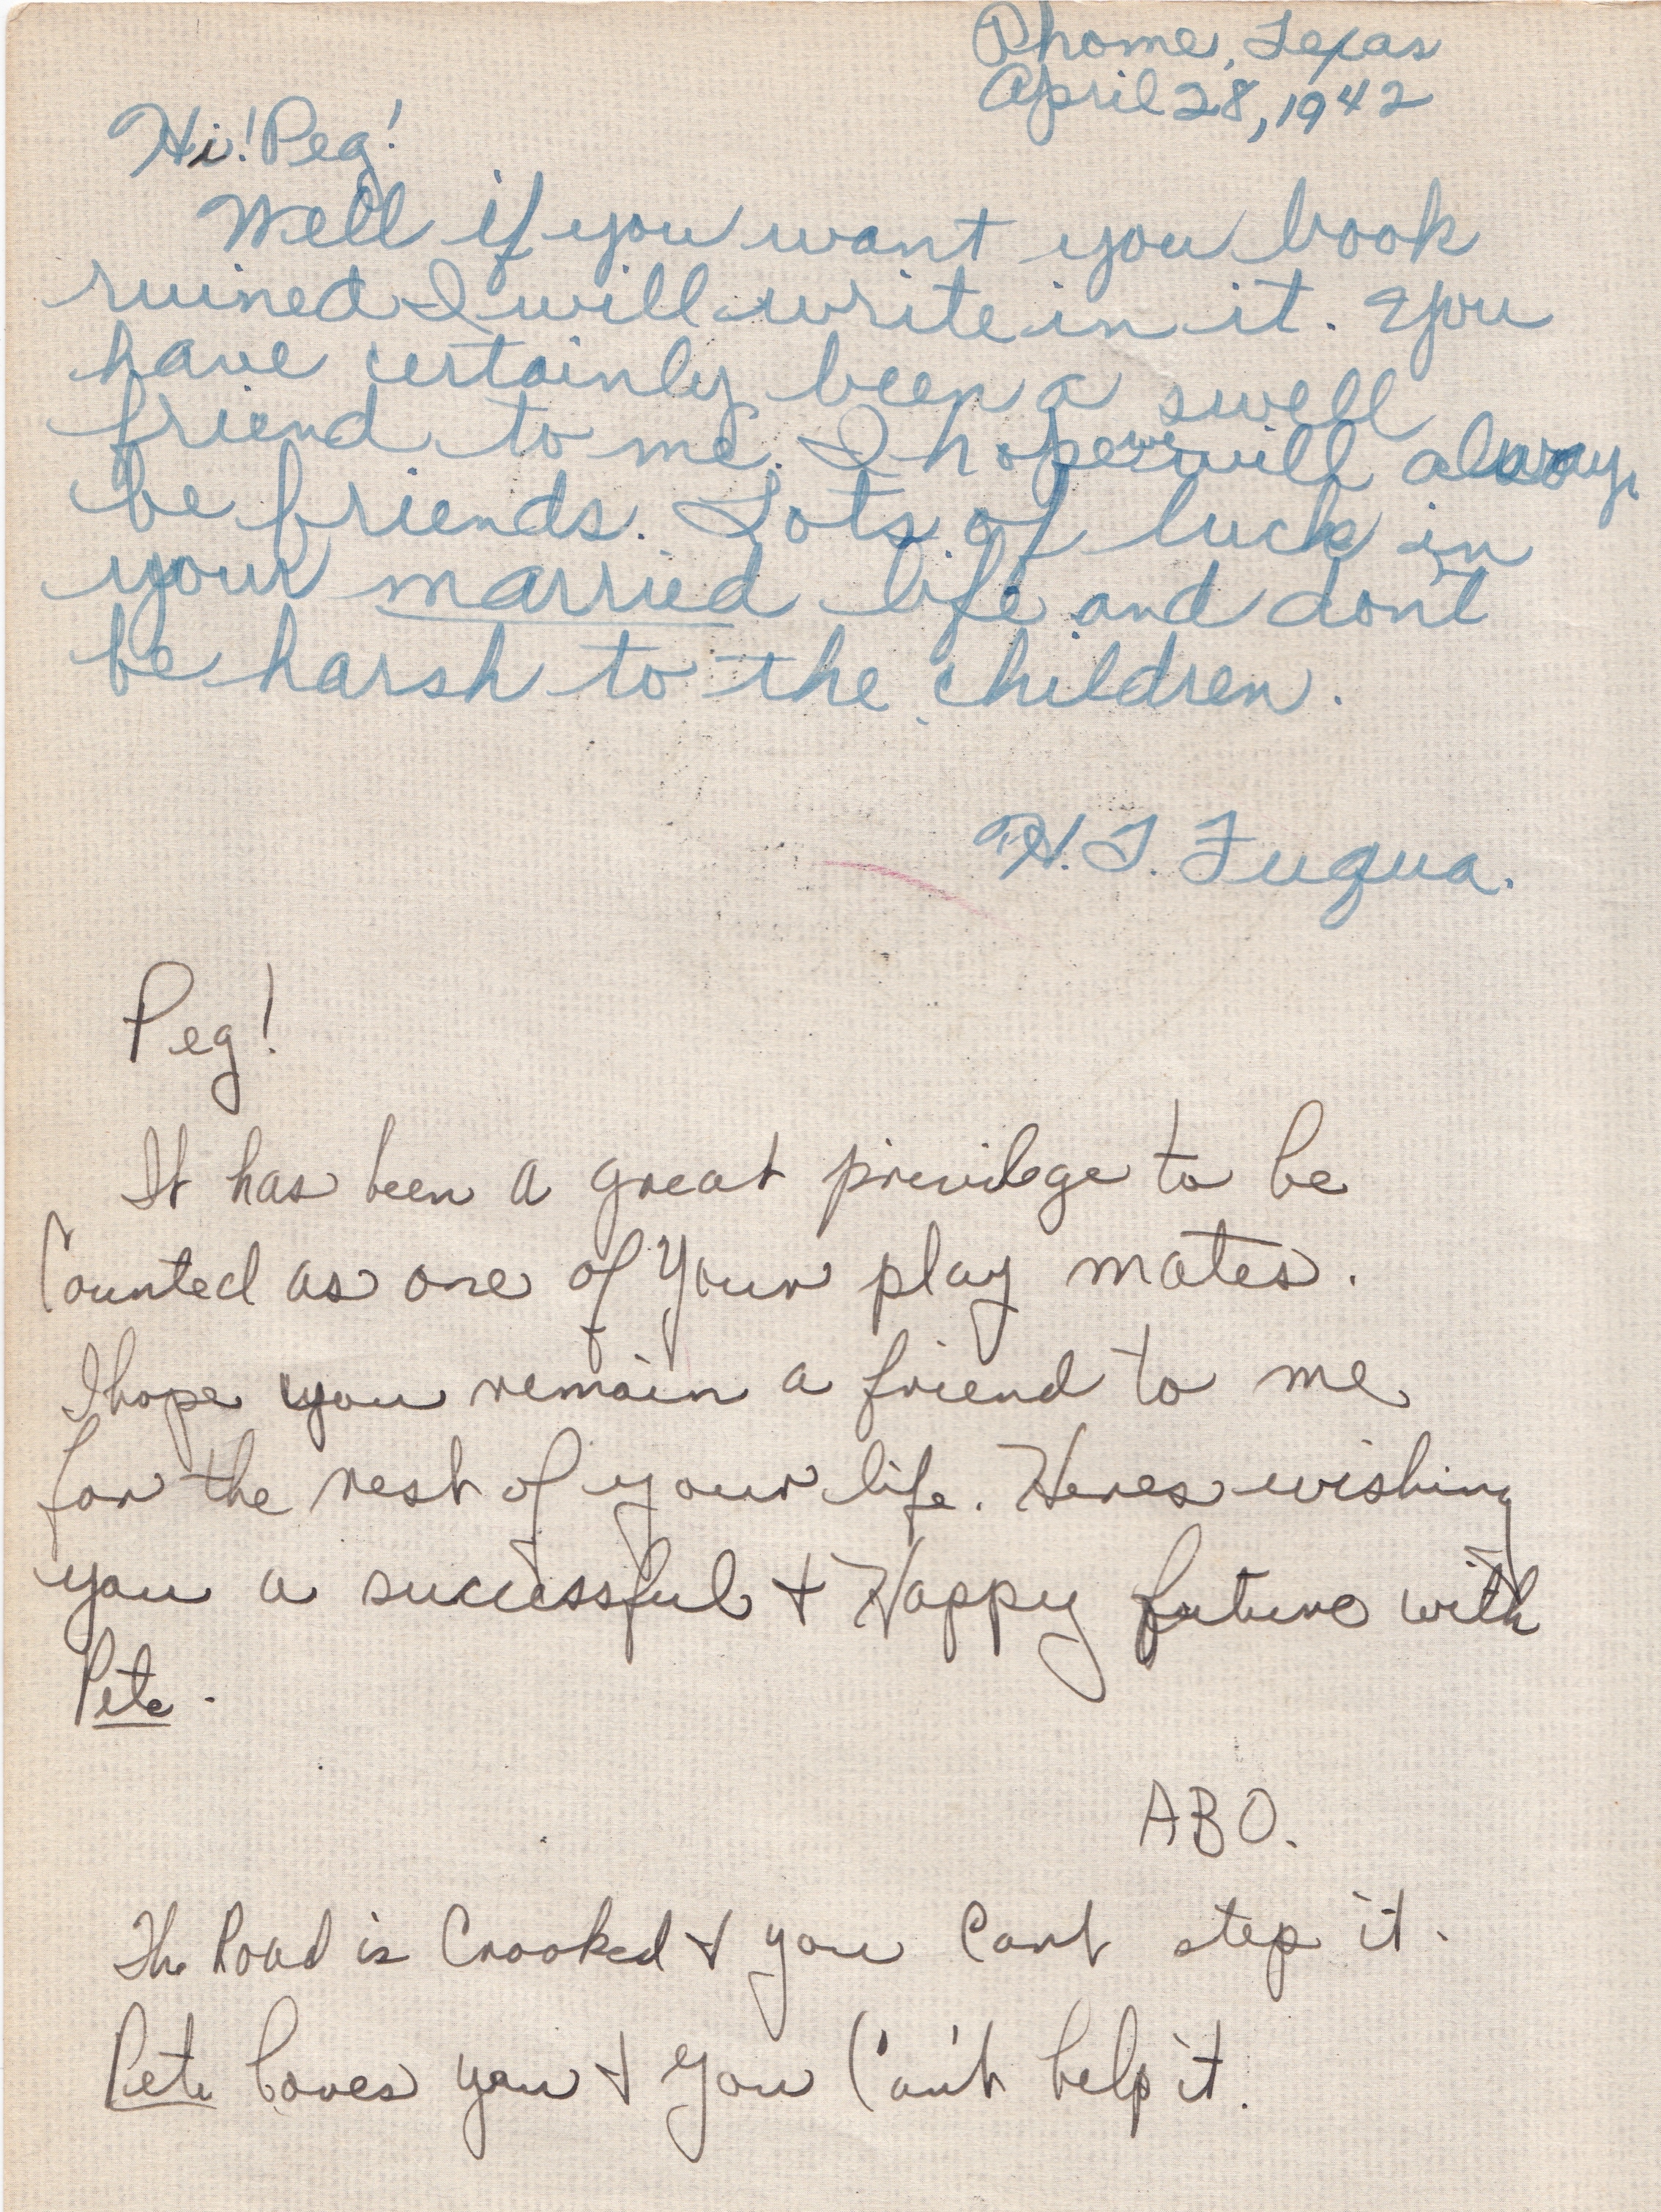 Rhome, Texas
April 28, 1942
Hi! Peg!
Well if you want you book
ruined I will write in it. You
have certainly been a swell
friend to me. I hope we will always
be friends. Lots of luck in
your married life and don't
be harsh to the children.
H. T. Fuqua.
Peg!
It has been a great privilege to be
Counted as one of your play mates.
I hope you remain a friend to me
for the rest of your life. Heres wishing
you a successful + Happy future with
Pete.
ABO.
The Road is Crooked + you Cant step it.
Pete loves you + you Can't help it.